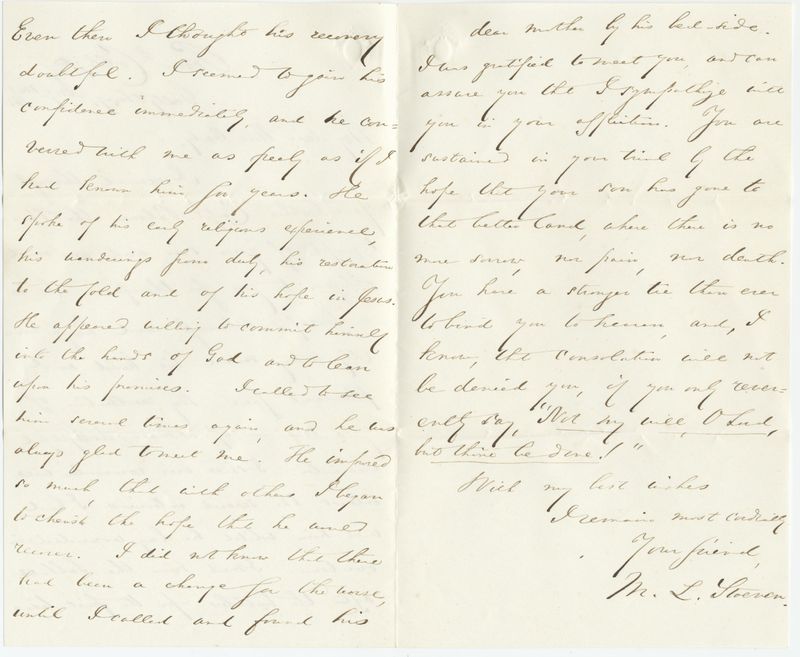 Even then I thought his recovery
doubtful. I seemed to gain his
confidence immediately, and he con=
versed with me as freely as if I
had known him for years. He
spoke of his early religious experience,
his wanderings from duty, his restoration
to the fold and of his hope in Jesus.
He appeared willing to commit himself
into the hands of God and to lean
upon his promises. I called to see
him several times again, and he was
always glad to meet me. He improved
so much, that with others I began
to cherish the hope that he would
recover. I did not know that there
had been a change for the worse,
until I called and found his
dear mother by his bed-side.
I was gratified to meet you, and can
assure you that I sympathize with
you in your affliction. You are
sustained in your trial by the
hope that your son has gone to
that better land, where there is no
more sorrow, nor pain, nor death.
You have a stronger tie than ever
to bind you to heaven, and, I
know, that consolation will not
be denied you, if you only rever-
ently say, "Not my will, O Lord,
but thine be done!"
With my best wishes
I remain most cordially
Your friend,
M. L.